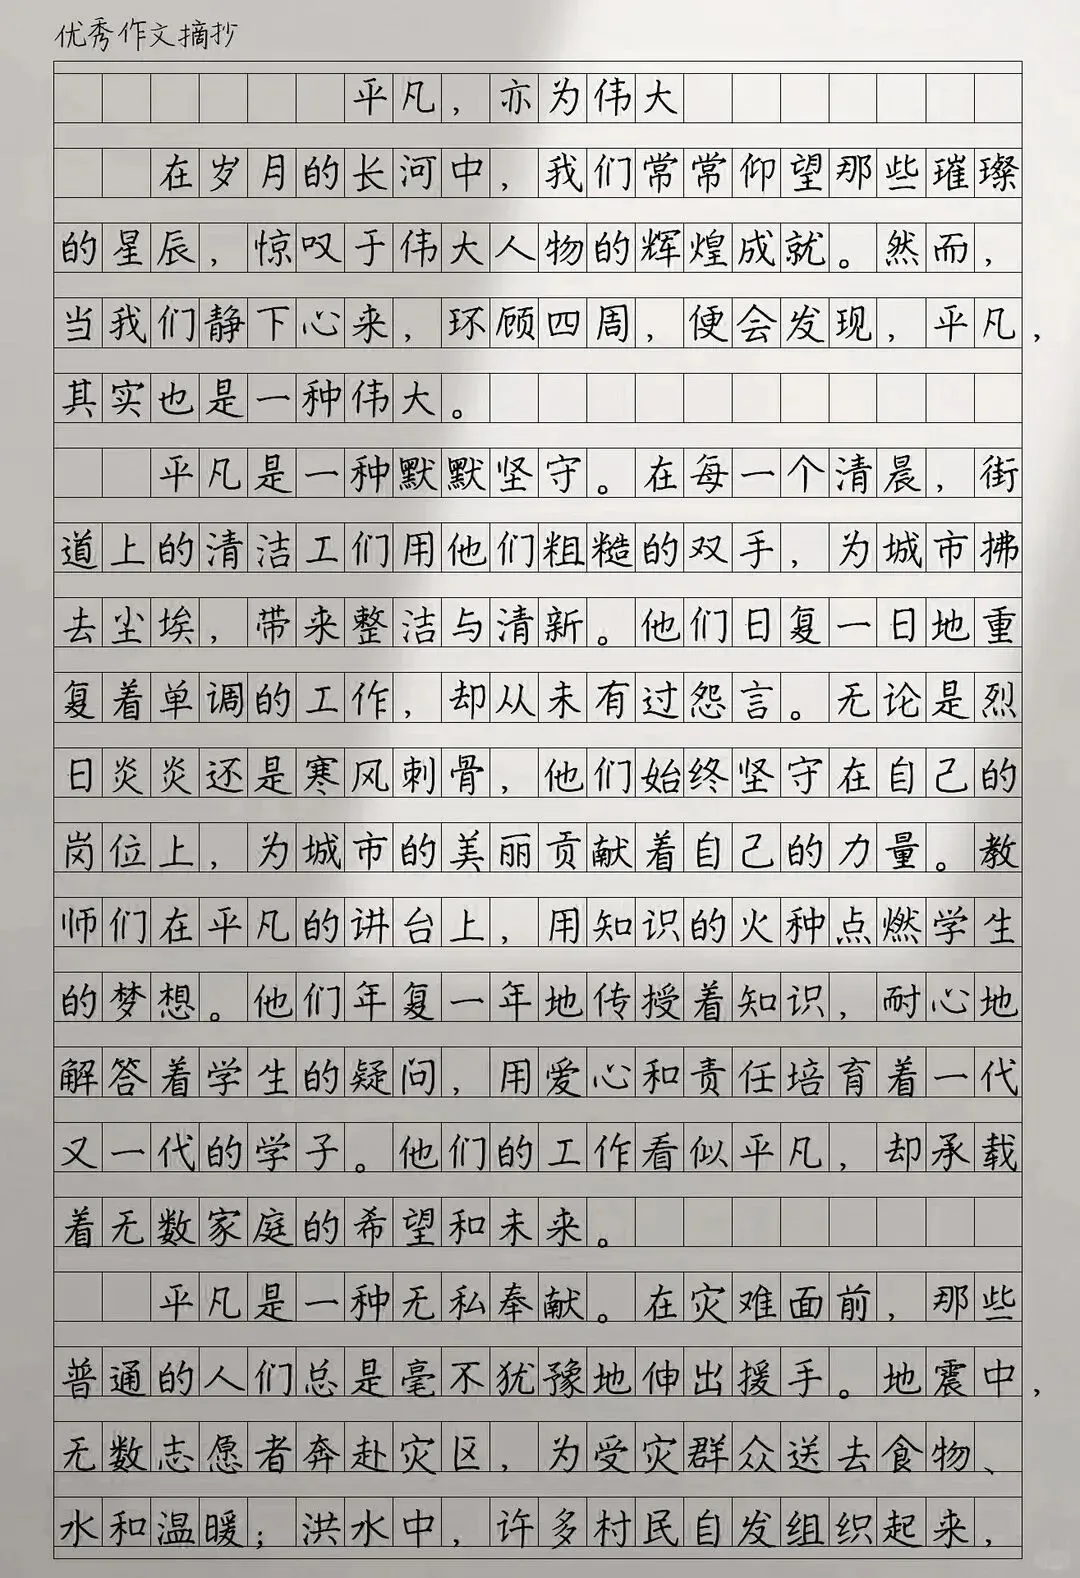 优秀作文摘抄
平凡，亦为伟大
在岁月的长河中，我们常常仰望那些璀璨
的星辰，惊叹于伟大人物的辉煌成就。然而，
当我们静下心来，环顾四周，便会发现，平凡，
其实也是一种伟大。
平凡是一种默默坚守。在每一个清晨，街
道上的清洁工们用他们粗糙的双手，为城市拂
去尘埃，带来整洁与清新。他们日复一日地重
复着单调的工作，却从未有过怨言。无论是烈
日炎炎还是寒风刺骨，他们始终坚守在自己的
岗位上，为城市的美丽贡献着自己的力量。教
师们在平凡的讲台上，用知识的火种点燃学生
的梦想。他们年复一年地传授着知识，耐心地
解答着学生的疑问，用爱心和责任培育着一代
又一代的学子。他们的工作看似平凡，却承载
着无数家庭的希望和未来。
平凡是一种无私奉献。在灾难面前，那些
普通的人们总是毫不犹豫地伸出援手。地震中，
无数志愿者奔赴灾区，为受灾群众送去食物、
水和温暖；洪水中，许多村民自发组织起来，